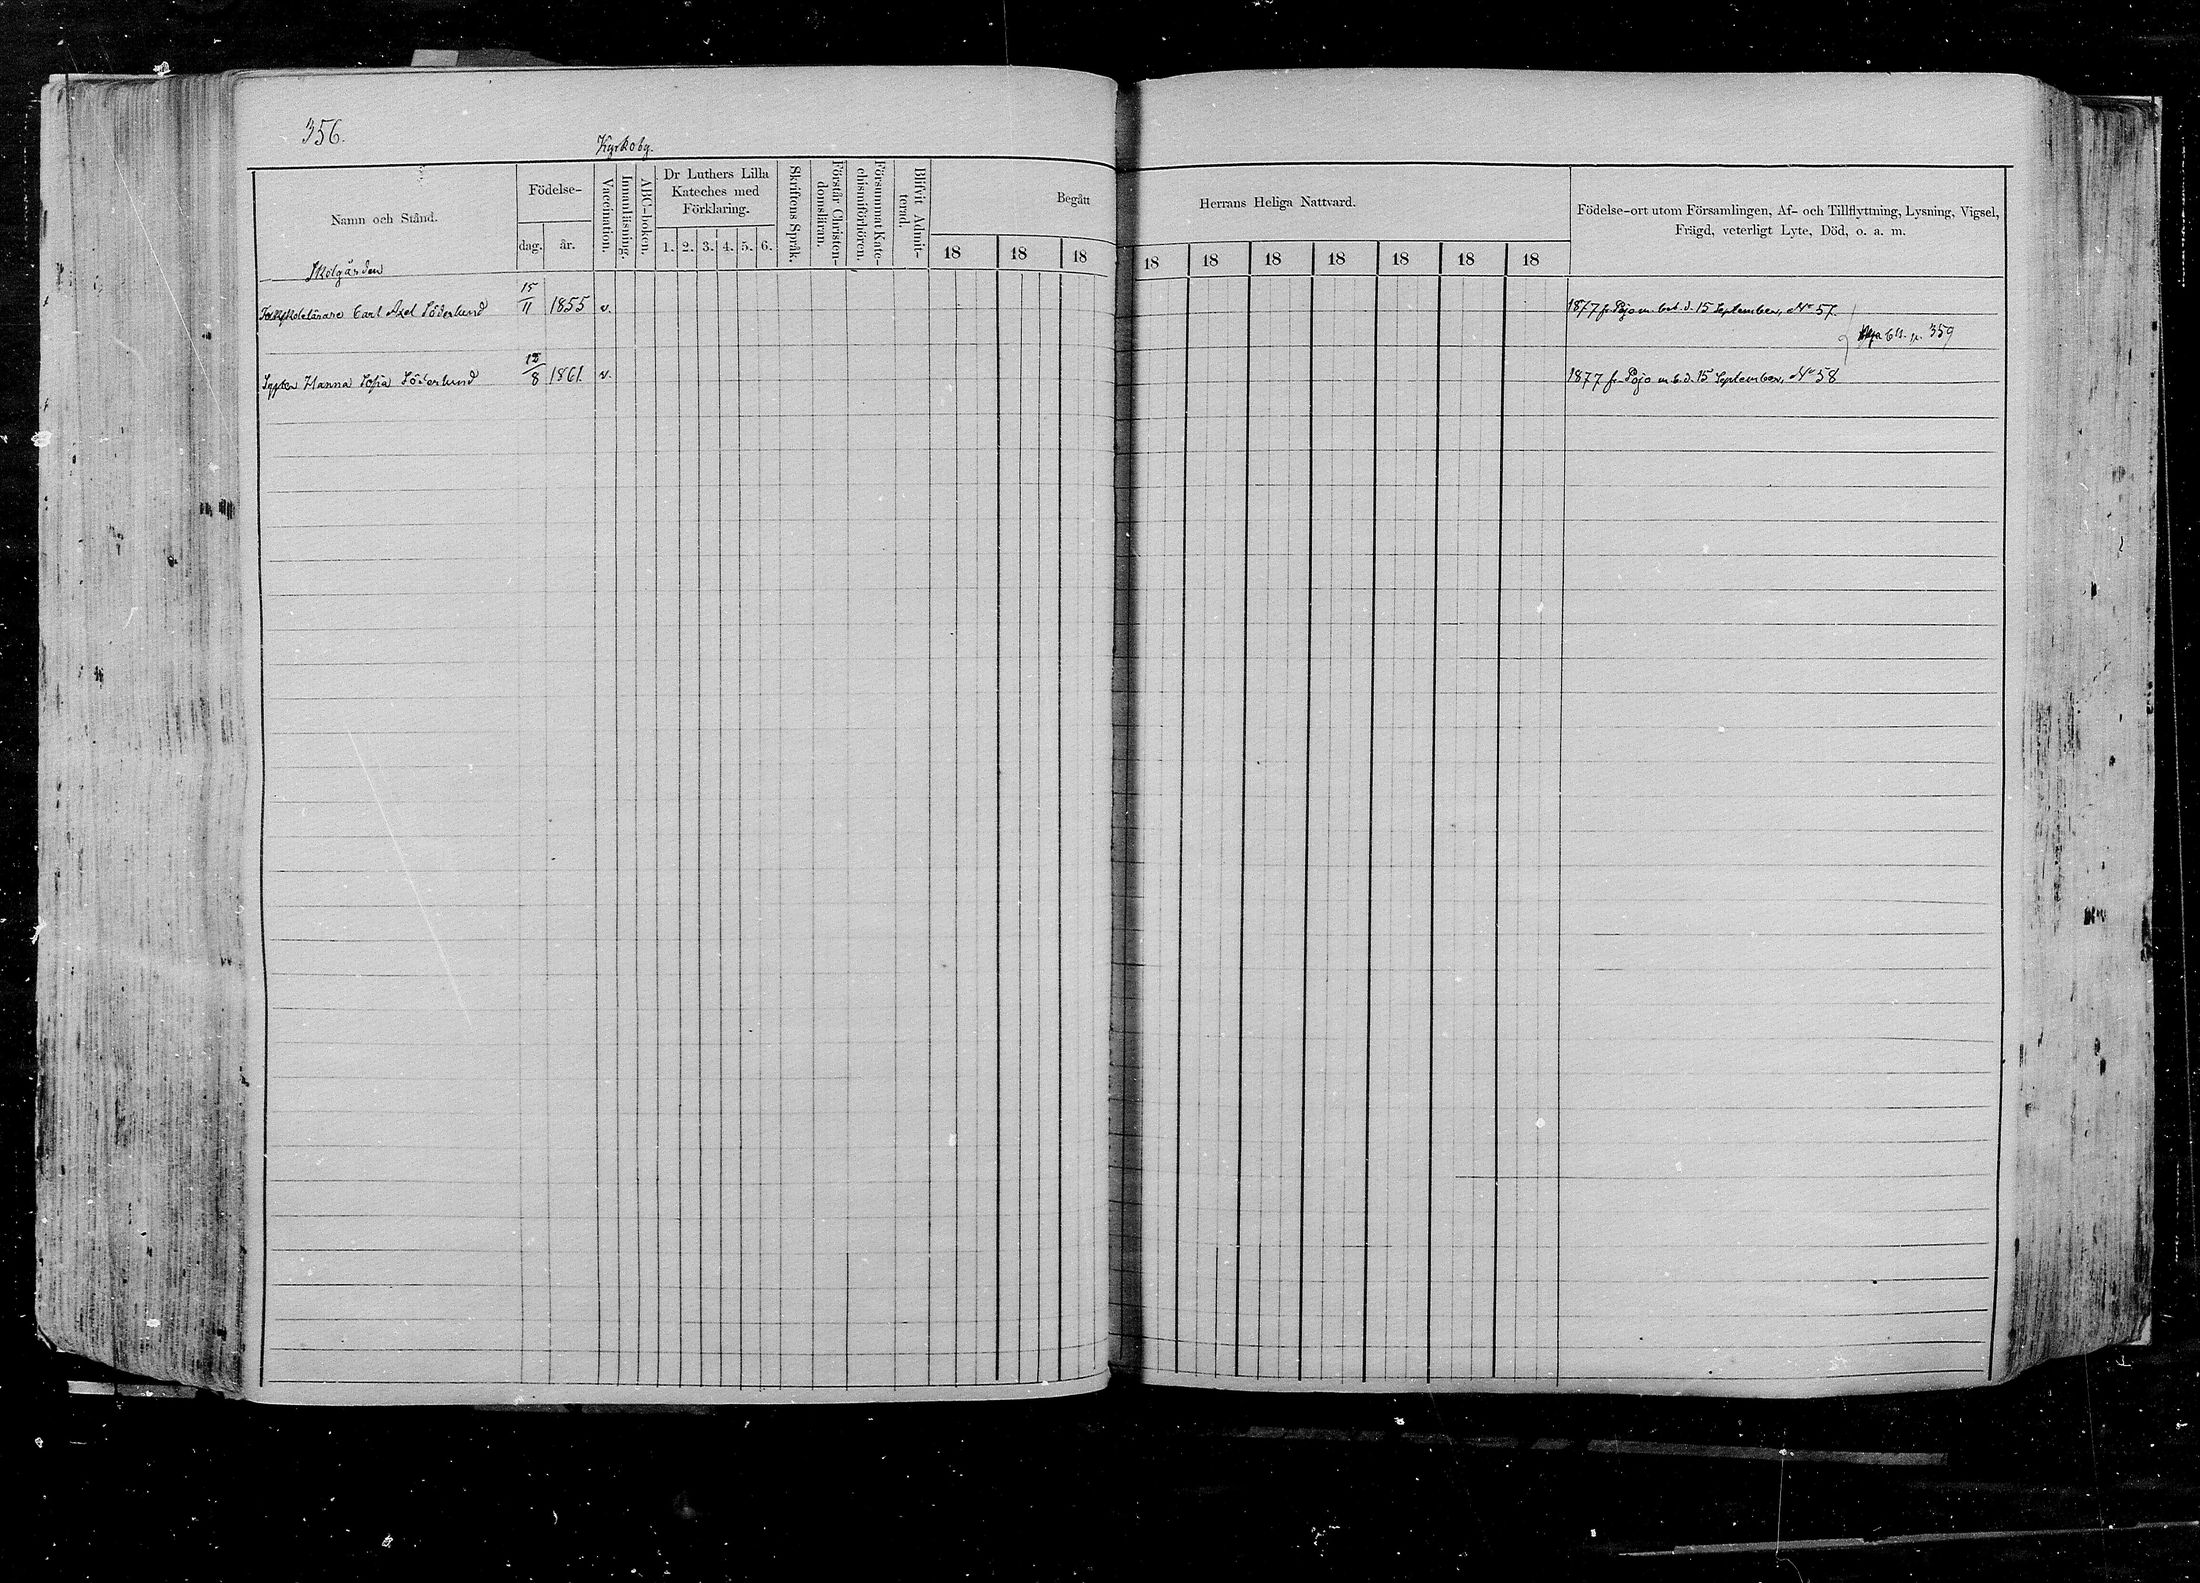 356.
Kyrkoby.
Namn och Stånd.
Födelse-
dag.
år.
Vaccination.
Innanläsning.
ABC-boken.
Dr Luthers Lilla
Kateches med
Förklaring.
1. 2. 3. 4. 5. 6.
Skriftens Språk.
Förstår Christen-
domsläran.
Försummat Kate-
chismiförhören.
Blifvit Admit-
terad.
Begått
Herrans Heliga Nattvard.
18 18 18 18 18 18 18 18 18 18
Födelse-ort utom Församlingen, Af- och Tillflyttning, Lysning, Vigsel,
Frägd, veterligt Lyte, Död, o. a. m.
Skolgården
Folkskolelärare Carl Axel Söderlund 15/11 1855 v. 1877 fr. Pojo m. bet. d. 15 September, No 57.
359
Syster Hanna Sofia Söderlund 12/8 1861. v. 1877 fr. Pojo m. b. d. 15 September, No 58